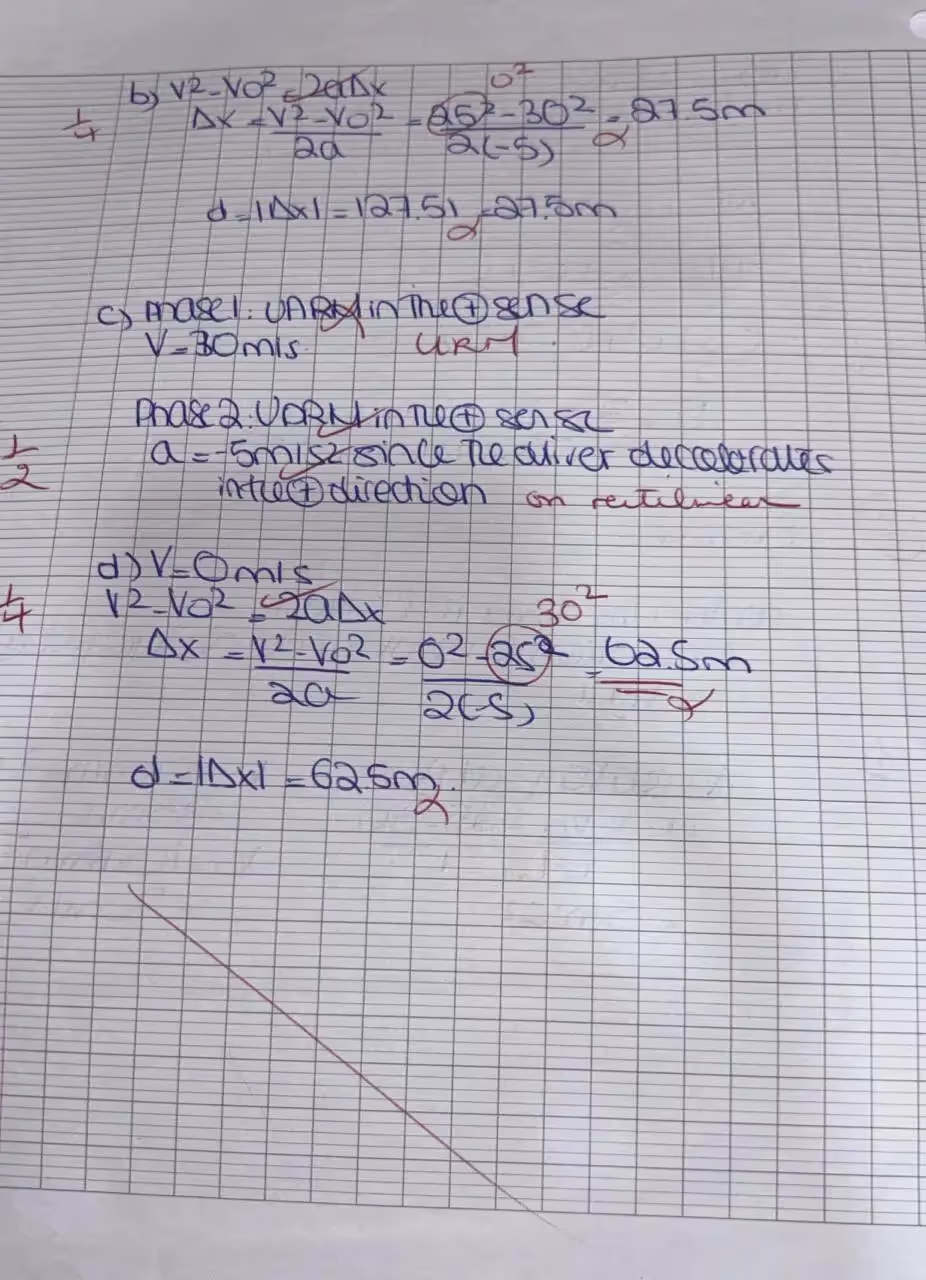 b) V² - Vo² = 2aΔx
0²
1/4
Δx = V² - Vo² / 2a = 25² - 30² / 2(-5) = 27.5m
d = |Δx| = |27.5| = 27.5m
c) Phase 1: UARM in the ⊕ sense
V = 30m/s. URM
Phase 2: UDRM in the ⊕ sense
1/2
a = -5m/s² since the driver decelerates
in the ⊕ direction on rectilinear
d) V = 0m/s
1/4
V² - Vo² = 2aΔx
30²
Δx = V² - Vo² / 2a = 0² - 25² / 2(-5) = 62.5m
d = |Δx| = 62.5m.